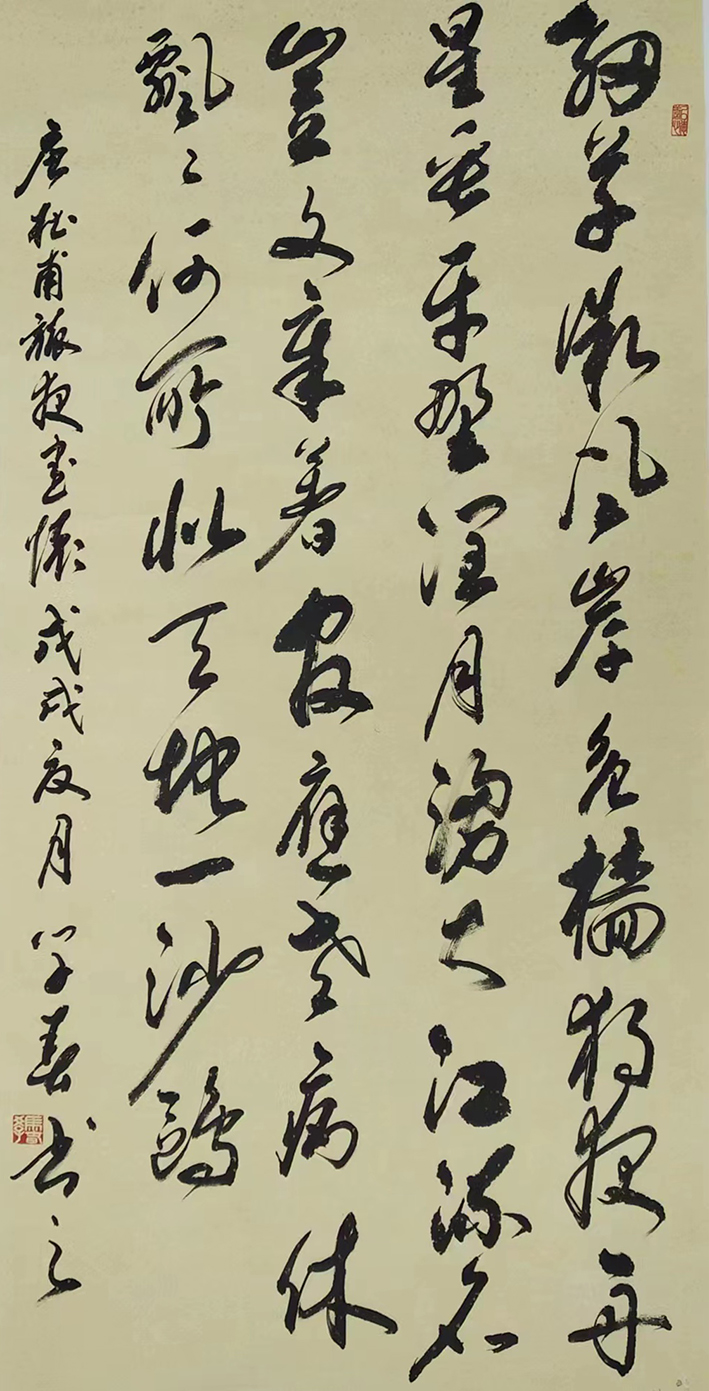 細草微風岸危檣獨夜舟
星垂平野闊月湧大江流名
豈文章著官應老病休
飄々何所似天地一沙鷗
唐杜甫旅夜書懷戊戌夏月學春書之